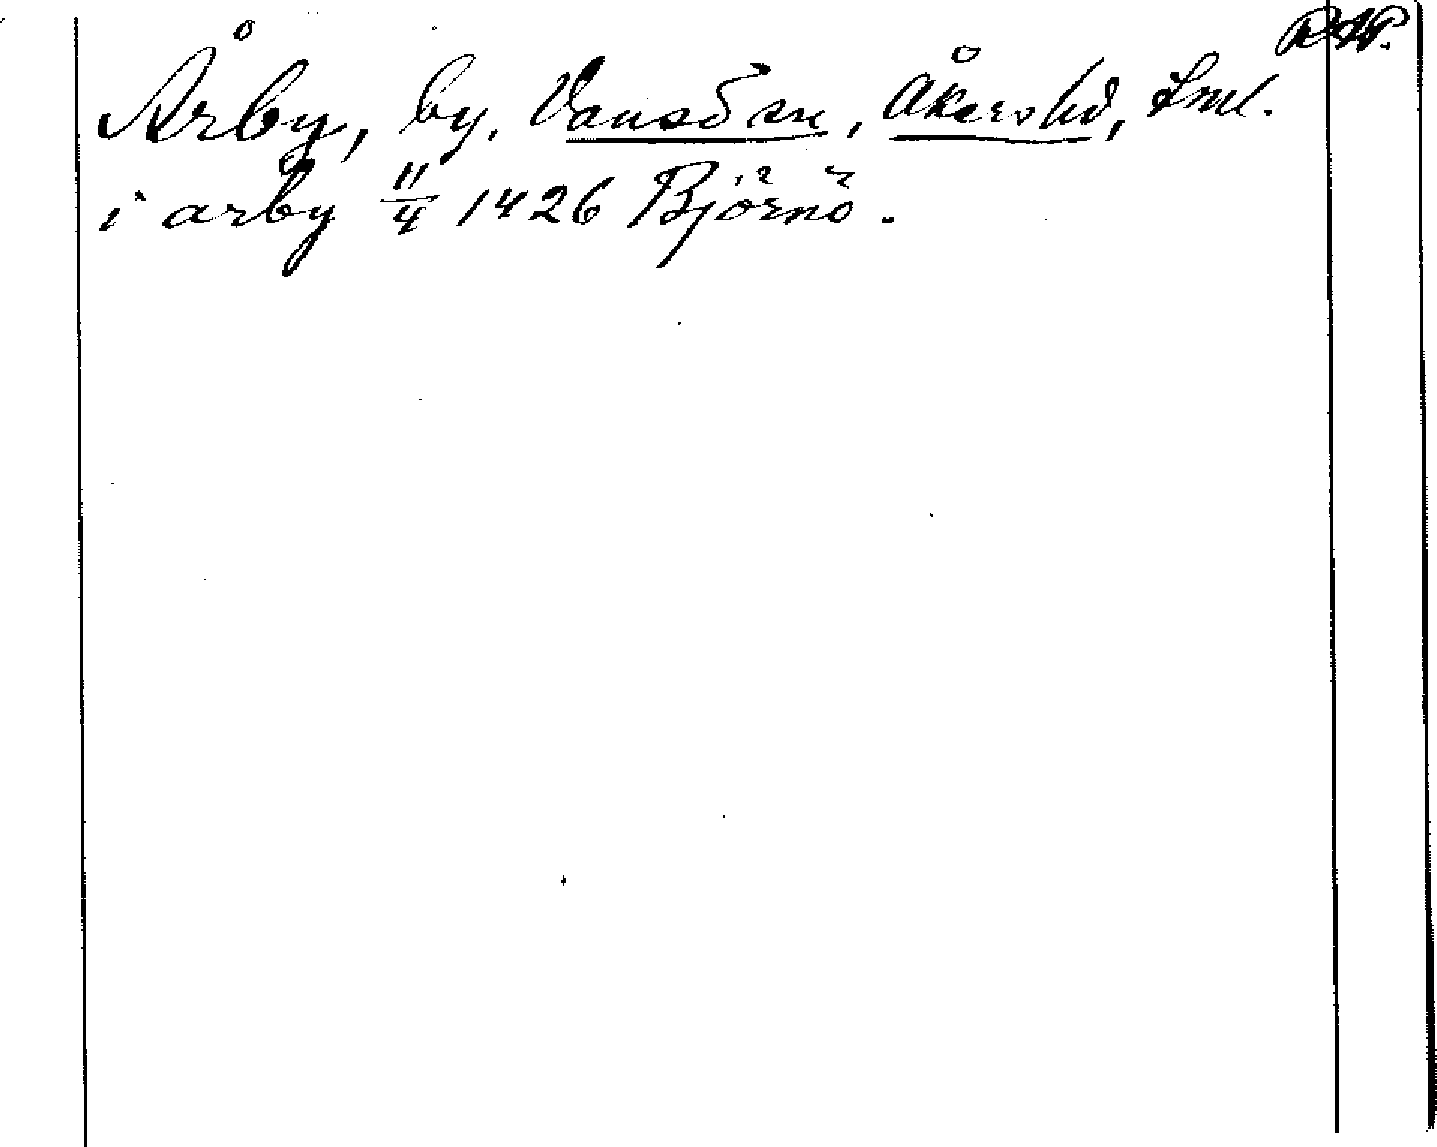 Årby, by, Vansö sn, Åkers hd, Sml.
i arby 11/4 1426 Björnö.